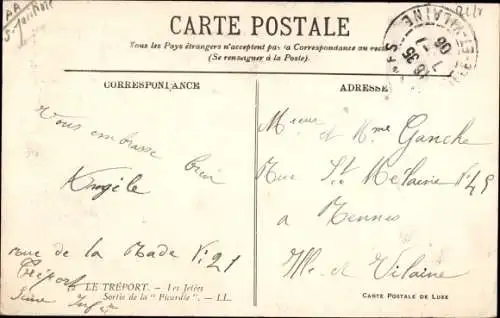 CARTE POSTALE
Tous les Pays étrangers n'acceptent pas la Correspondance au recto
(Se renseigner à la Poste).
CORRESPONDANCE
Vous embrasse bien
rue de la Rade N° 21
Tréport
Seine Infre
LE TRÉPORT. - Les Jetées
Sortie de la "Picardie". - LL.
ADRESSE
Mieur et Mme Ganché
Rue St Mélaine N° 45
a Rennes
Ille et Vilaine
CARTE POSTALE DE LUXE